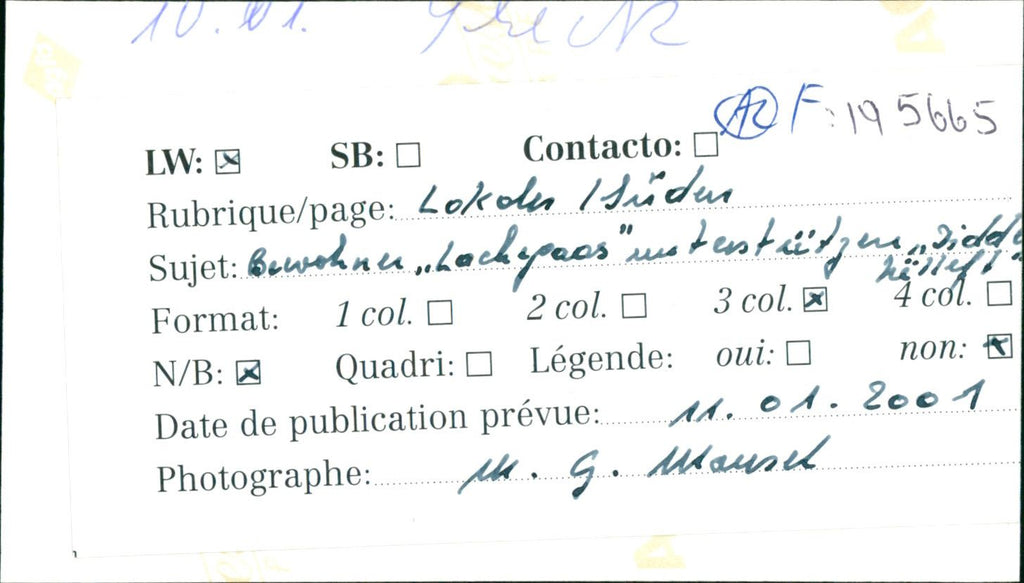 10. 01.
AZ F: 195665
LW: ☒ SB: ☐ Contacto: ☐
Rubrique/page: Lokales / Süden
Sujet: Bewohner „Lochepaas" unterstützen „Diddeléng
hëlleft"
Format: 1 col. ☐ 2 col. ☐ 3 col. ☒ 4 col. ☐
N/B: ☒ Quadri: ☐ Légende: oui: ☐ non: ☒
Date de publication prévue: 11. 01. 2001
Photographe: M. G.